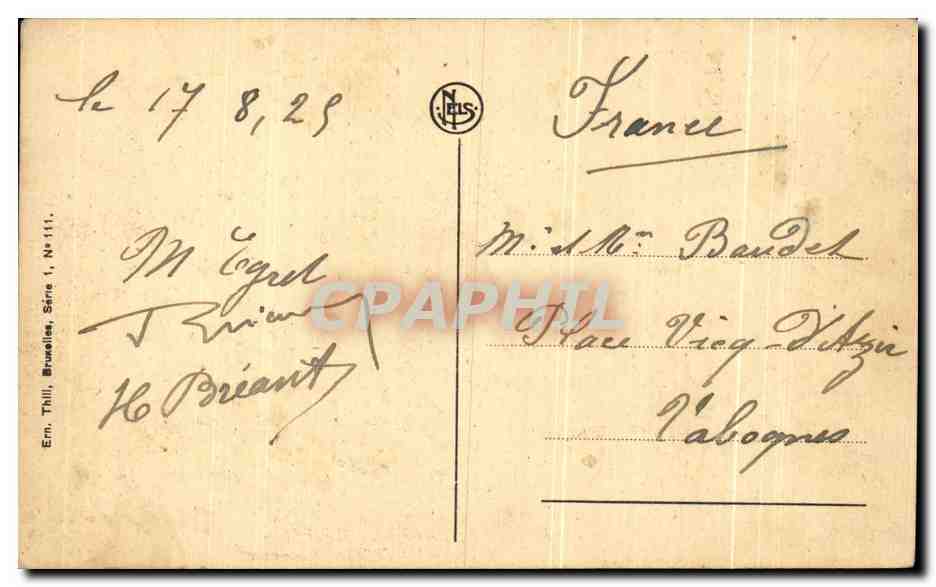 le 17 8, 25
M Egret
H Bréant
Ern. Thill, Bruxelles, Série 1, No 111.
NELS
France
Mr et Mme Baudet
Place Vicq-d'Azir
Valognes
CPAPHIL